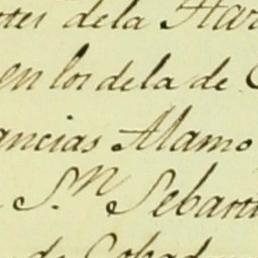 dela Har
en los dela de
ancias Alamo
S.n Sebast
de